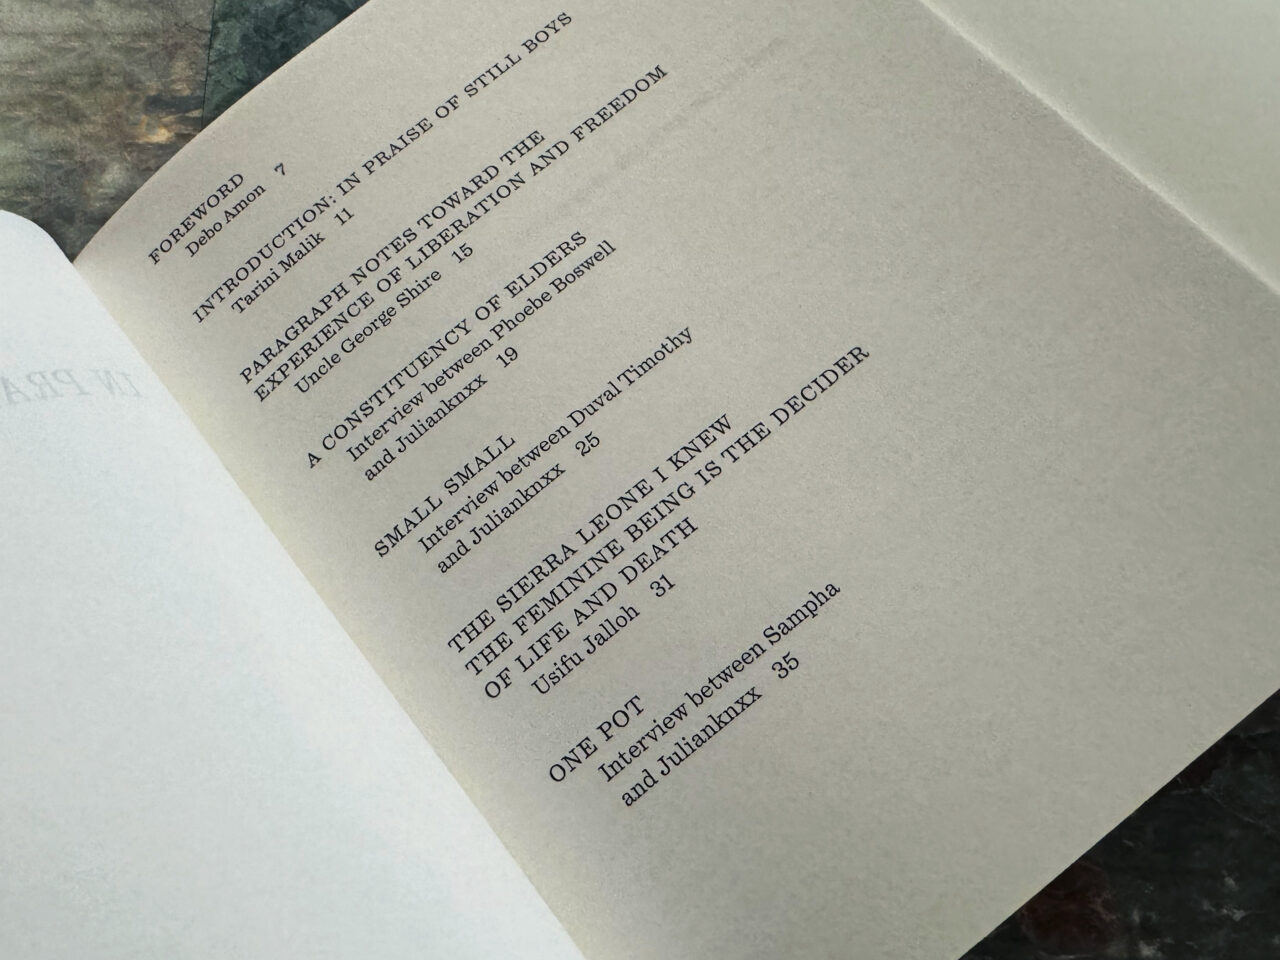 FOREWORD
Debo Amon 7
INTRODUCTION: IN PRAISE OF STILL BOYS
Tarini Malik 11
PARAGRAPH NOTES TOWARD THE
EXPERIENCE OF LIBERATION AND FREEDOM
Uncle George Shire 15
A CONSTITUENCY OF ELDERS
Interview between Phoebe Boswell
and Julianknxx 19
SMALL SMALL
Interview between Duval Timothy
and Julianknxx 25
THE SIERRA LEONE I KNEW
THE FEMININE BEING IS THE DECIDER
OF LIFE AND DEATH
Usifu Jalloh 31
ONE POT
Interview between Sampha
and Julianknxx 35
IN PRA